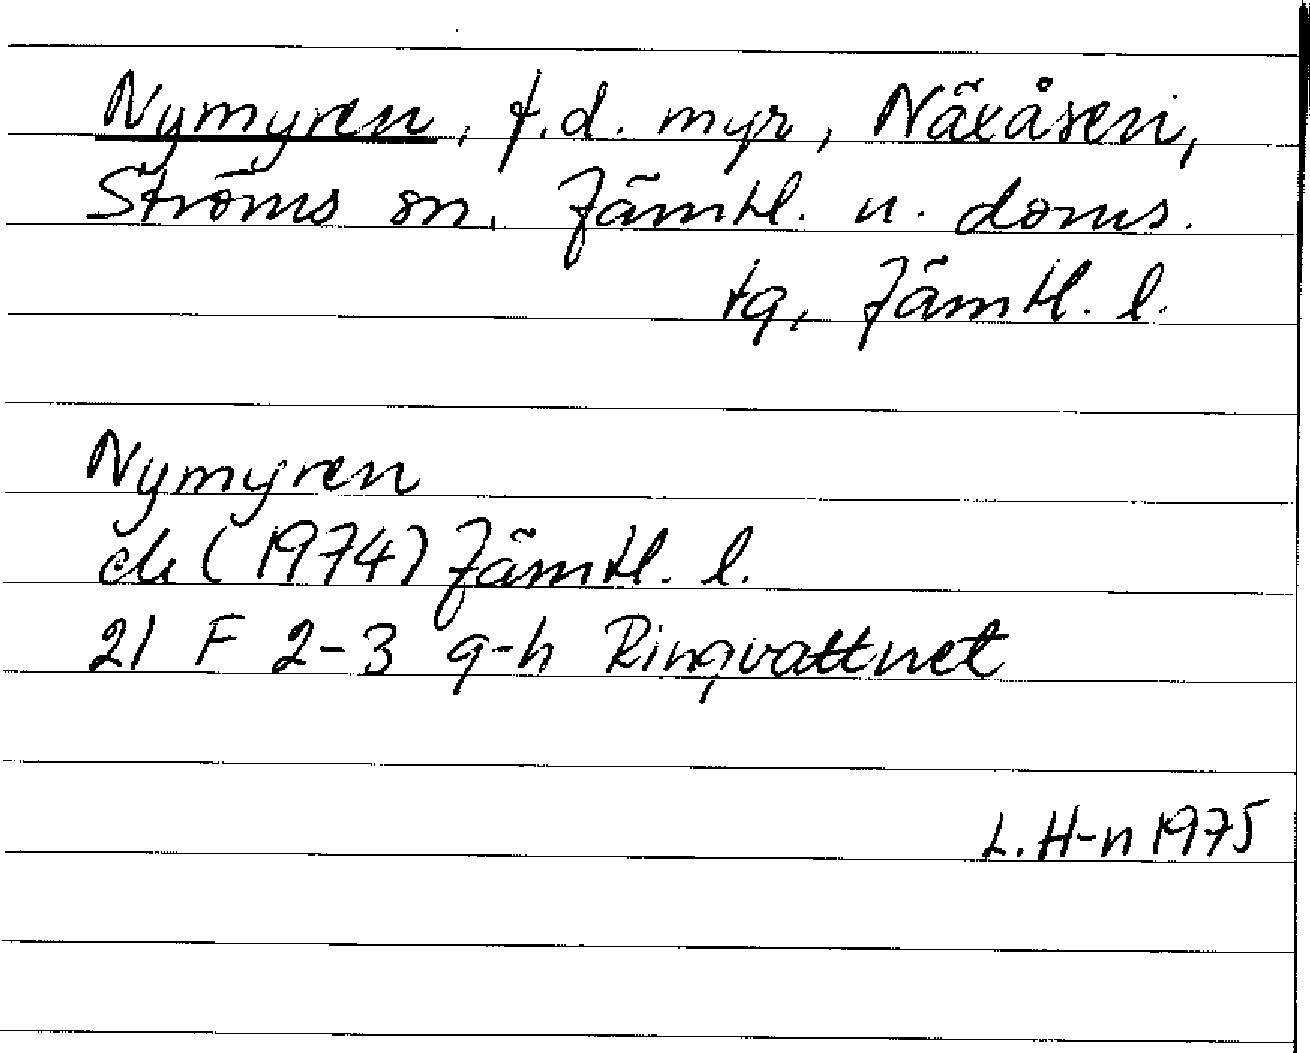 Nymyren, f.d. myr, Näxåsen,
Ströms sn, Jämtl. n. doms.
tg, Jämtl. l.
Nymyren
ek (1974) Jämtl. l.
21 F 2-3 g-h Ringvattnet
L. H-n 1975